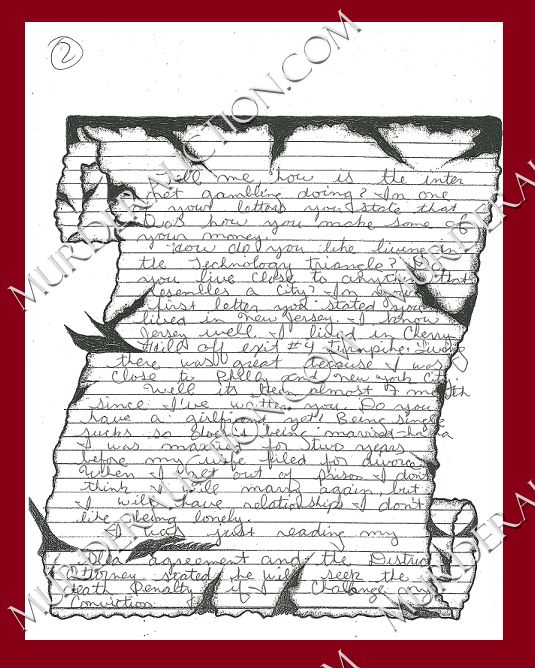 2
Tell me, how is the inter
net gambling doing? In one
of your letters you state that
was how you make some of
your money.
How do you like living in
the Technology triangle? Do
you live close to anything that
resembles a city? In your
first letter you stated you
lived in New Jersey. I know
Jersey well. I lived in Cherry
Hills off exit #4 turnpike. Living
there was great because I was
close to Philla and New York City.
Well its been almost a month
since I've written you. Do you
have a girlfriend yet? Being single
sucks so does being married-ha ha
I was married for two years
before my wife filed for divorce.
When I get out of prison I don't
think I will marry again, but
I will have relationships I don't
like being lonely.
I was just reading my
Plea agreement and the District
Attorney stated he will seek the
death Penalty if I challenge my
Conviction.
MURDERAUCTION.COM